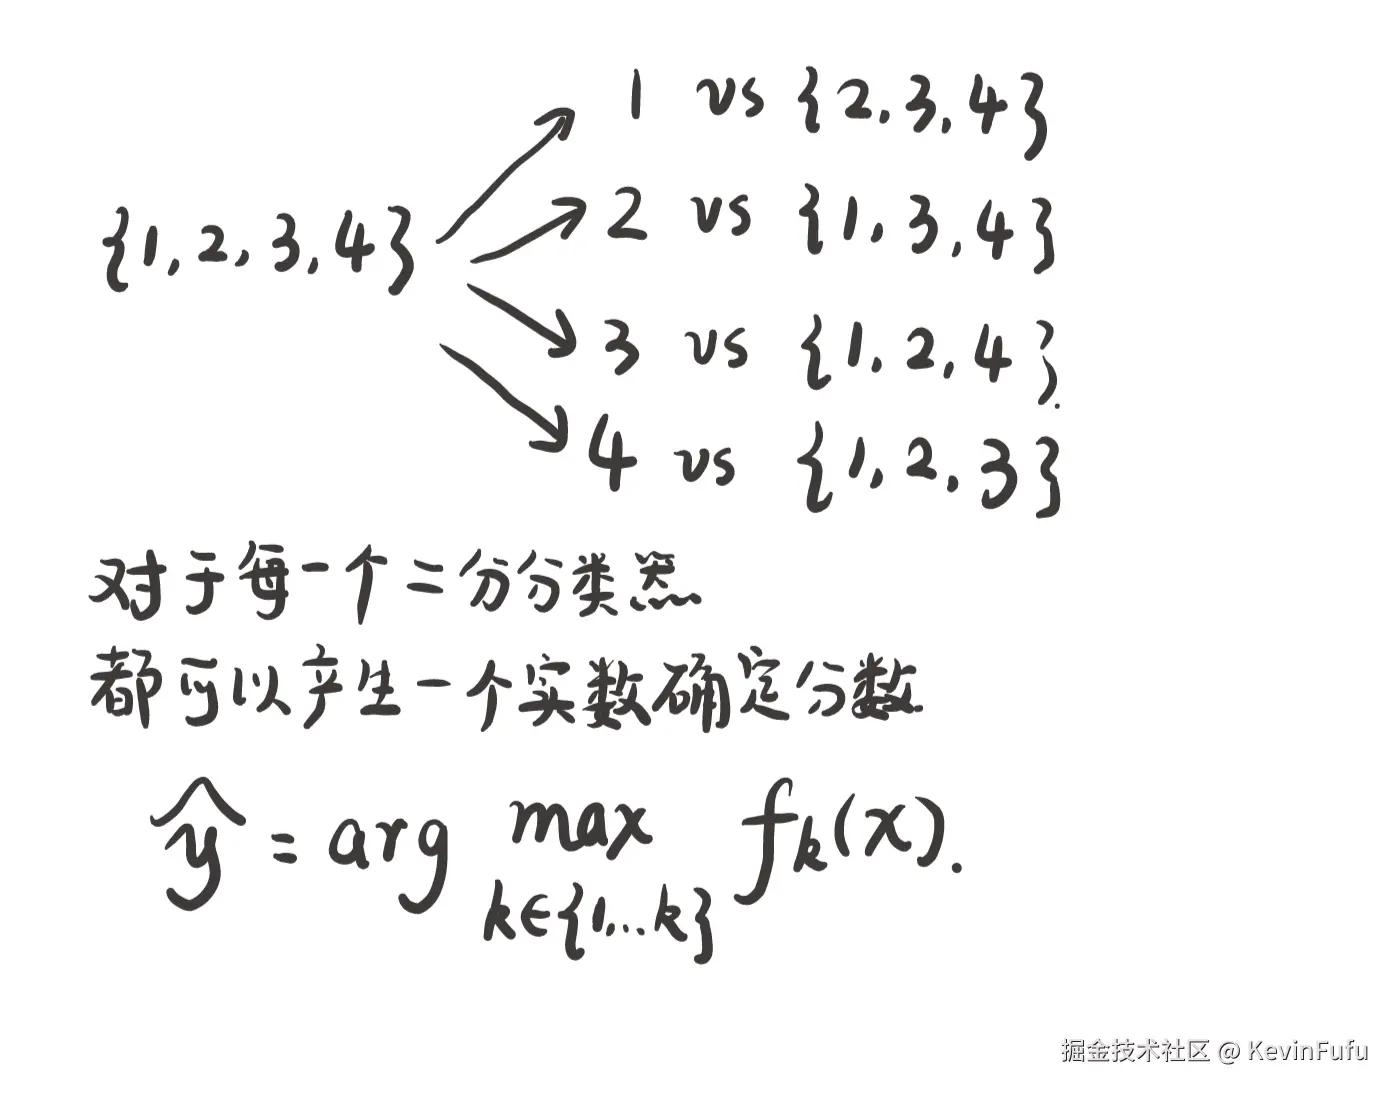 1 vs {2,3,4}
{1,2,3,4}
2 vs {1,3,4}
3 vs {1,2,4}.
4 vs {1,2,3}
对于每一个二分分类器
都可以产生一个实数确定分数.
ŷ = arg max f_k(x).
k∈{1,...k}
掘金技术社区 @ KevinFufu